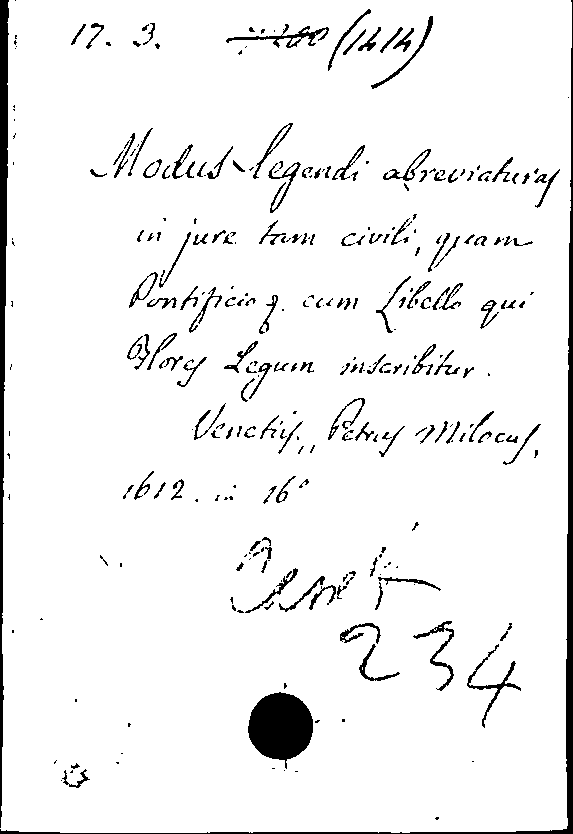 17. 3. (1414)
Modus legendi abreviaturas
in jure tam civili, quam
Pontificio q. cum Libello qui
Flores Legum inscribitur.
Venetiis, Petrus Milocus,
1612. in 16°
234